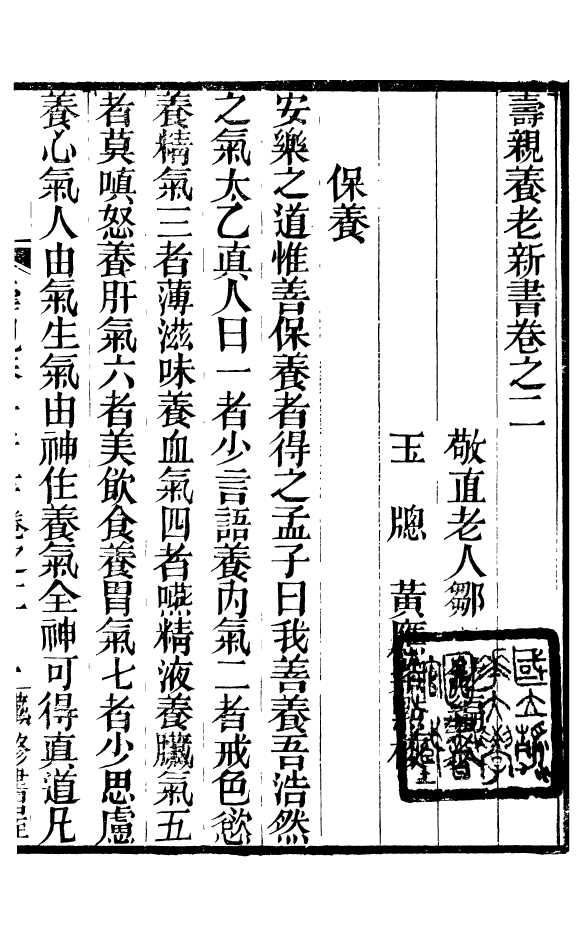 壽親養老新書卷之二
敬直老人鄒
玉牕黃應
保養
安樂之道惟善保養者得之孟子曰我善養吾浩然
之氣太乙真人曰一者少言語養內氣二者戒色慾
養精氣三者薄滋味養血氣四者嚥精液養臟氣五
者莫嗔怒養肝氣六者美飲食養胃氣七者少思慮
養心氣人由氣生氣由神住養氣全神可得真道凡